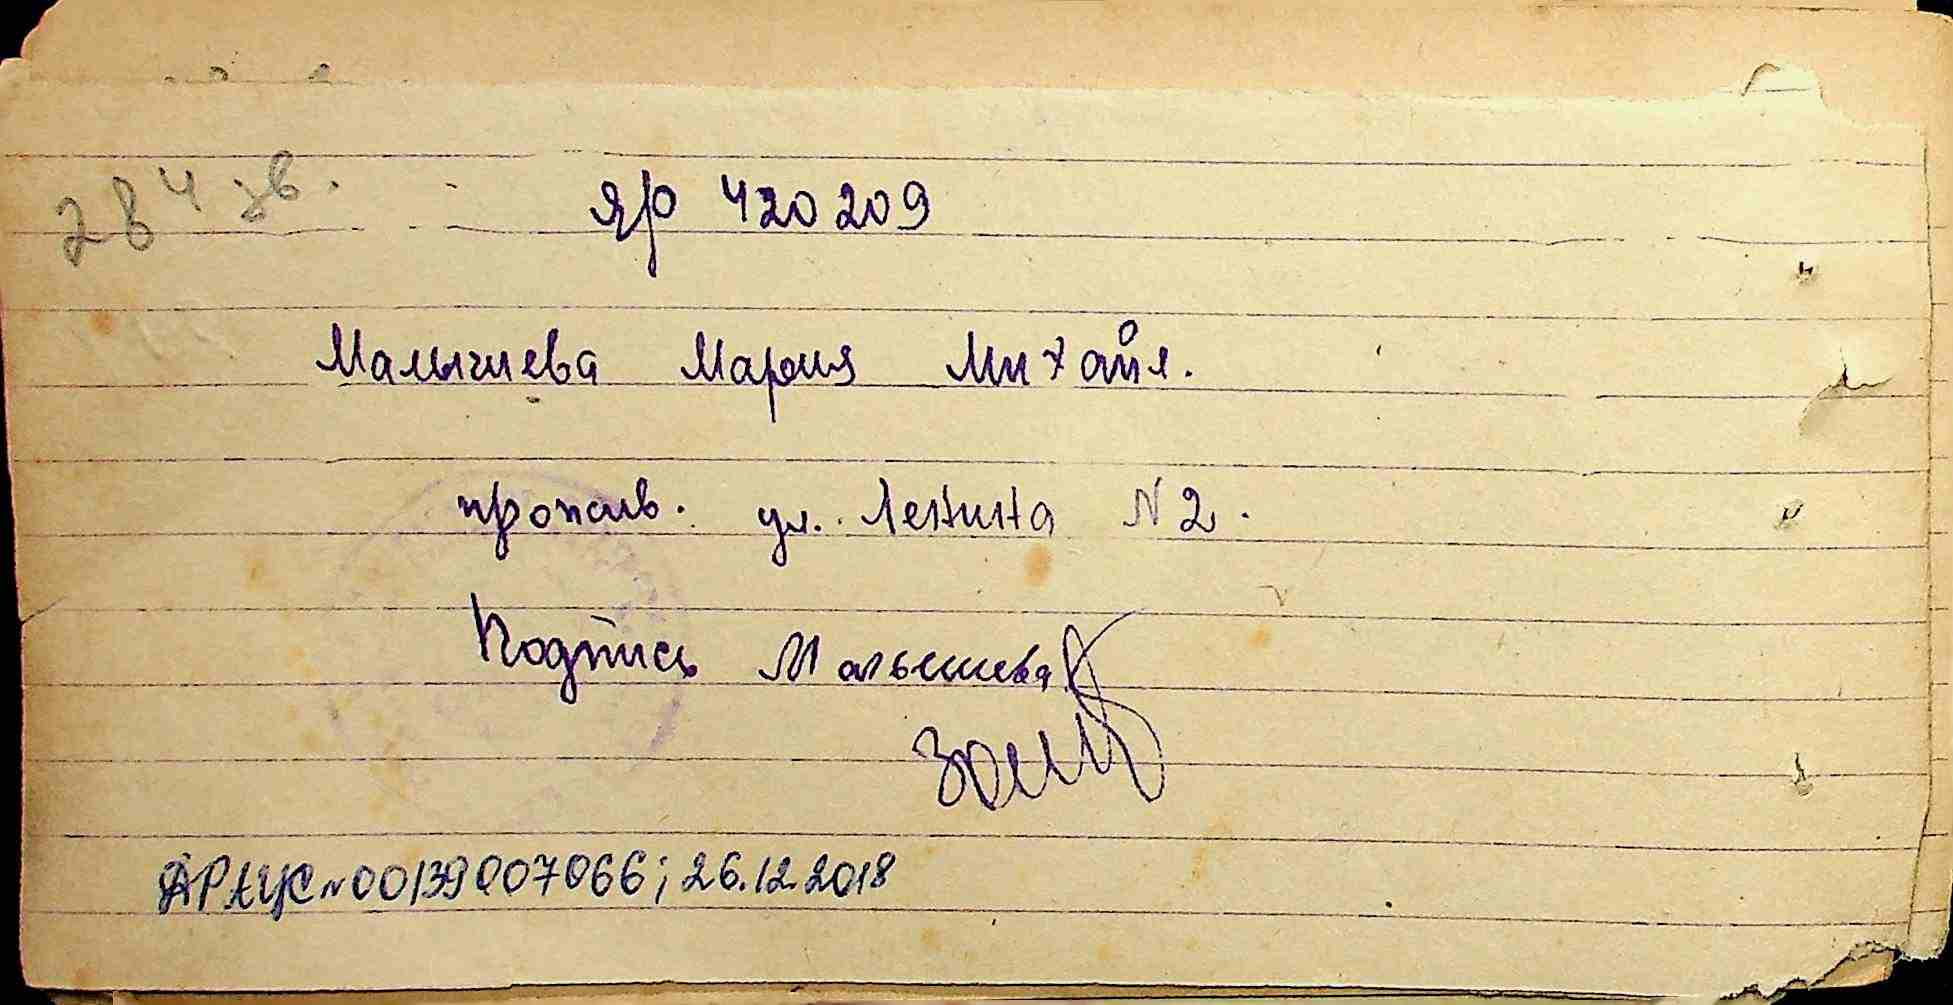 284 зв.
яр 420209
Малычиева Мария Михайл.
прожив. ул. Ленина N 2.
Подпись Малышева
ДРАЦС N 00139007066; 26.12.2018